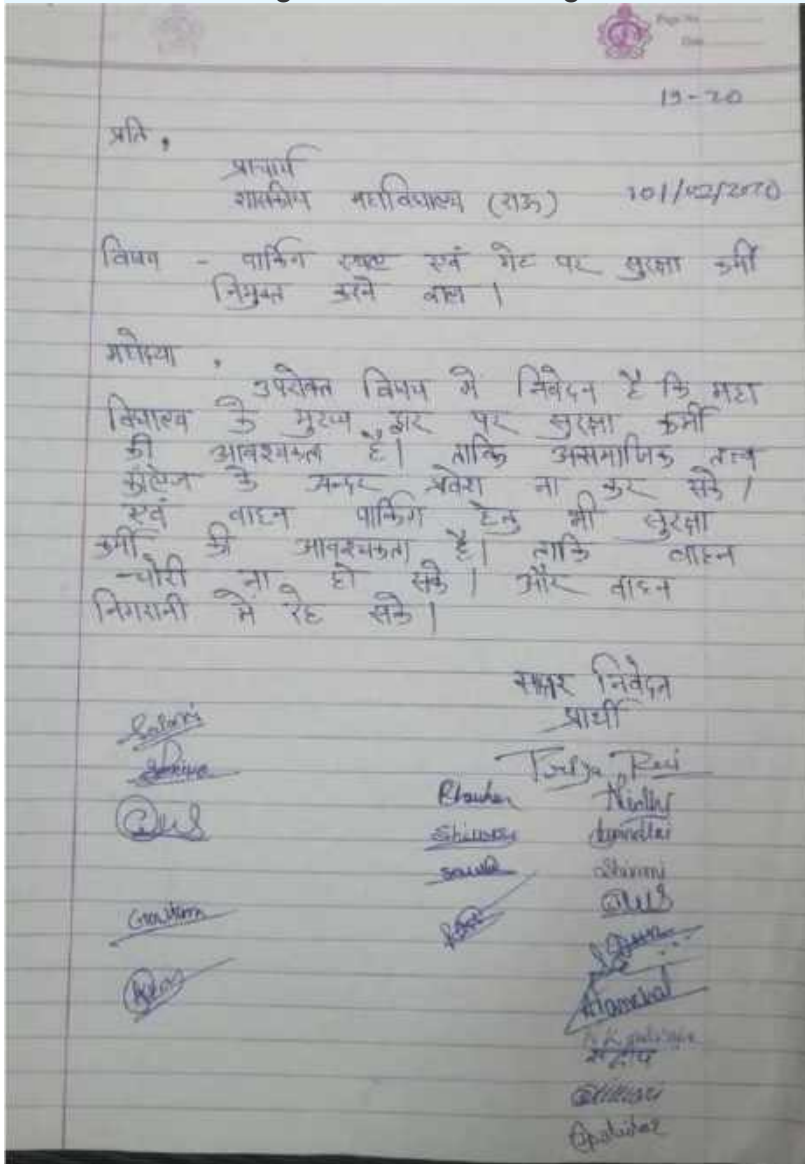 Page No.
Date
19-20
प्रति,
प्राचार्य
शासकीय महाविद्यालय (राऊ) 01/02/2020
विषय - पार्किंग स्थल एवं गेट पर सुरक्षा कर्मी
नियुक्त करने बाबत ।
महोदया ,
उपरोक्त विषय में निवेदन है कि महा
विद्यालय के मुख्य द्वार पर सुरक्षा कर्मी
की आवश्यकता है। ताकि असमाजिक तत्व
कॉलेज के अन्दर प्रवेश ना कर सके ।
एवं वाहन पार्किंग हेतु भी सुरक्षा
कर्मी की आवश्यकता है। ताकि वाहन
चोरी ना हो सके । और वाहन
निगरानी में रहे सके ।
निवेदन
प्रार्थी
Nidhi
Shivani
Gautam
संदीप